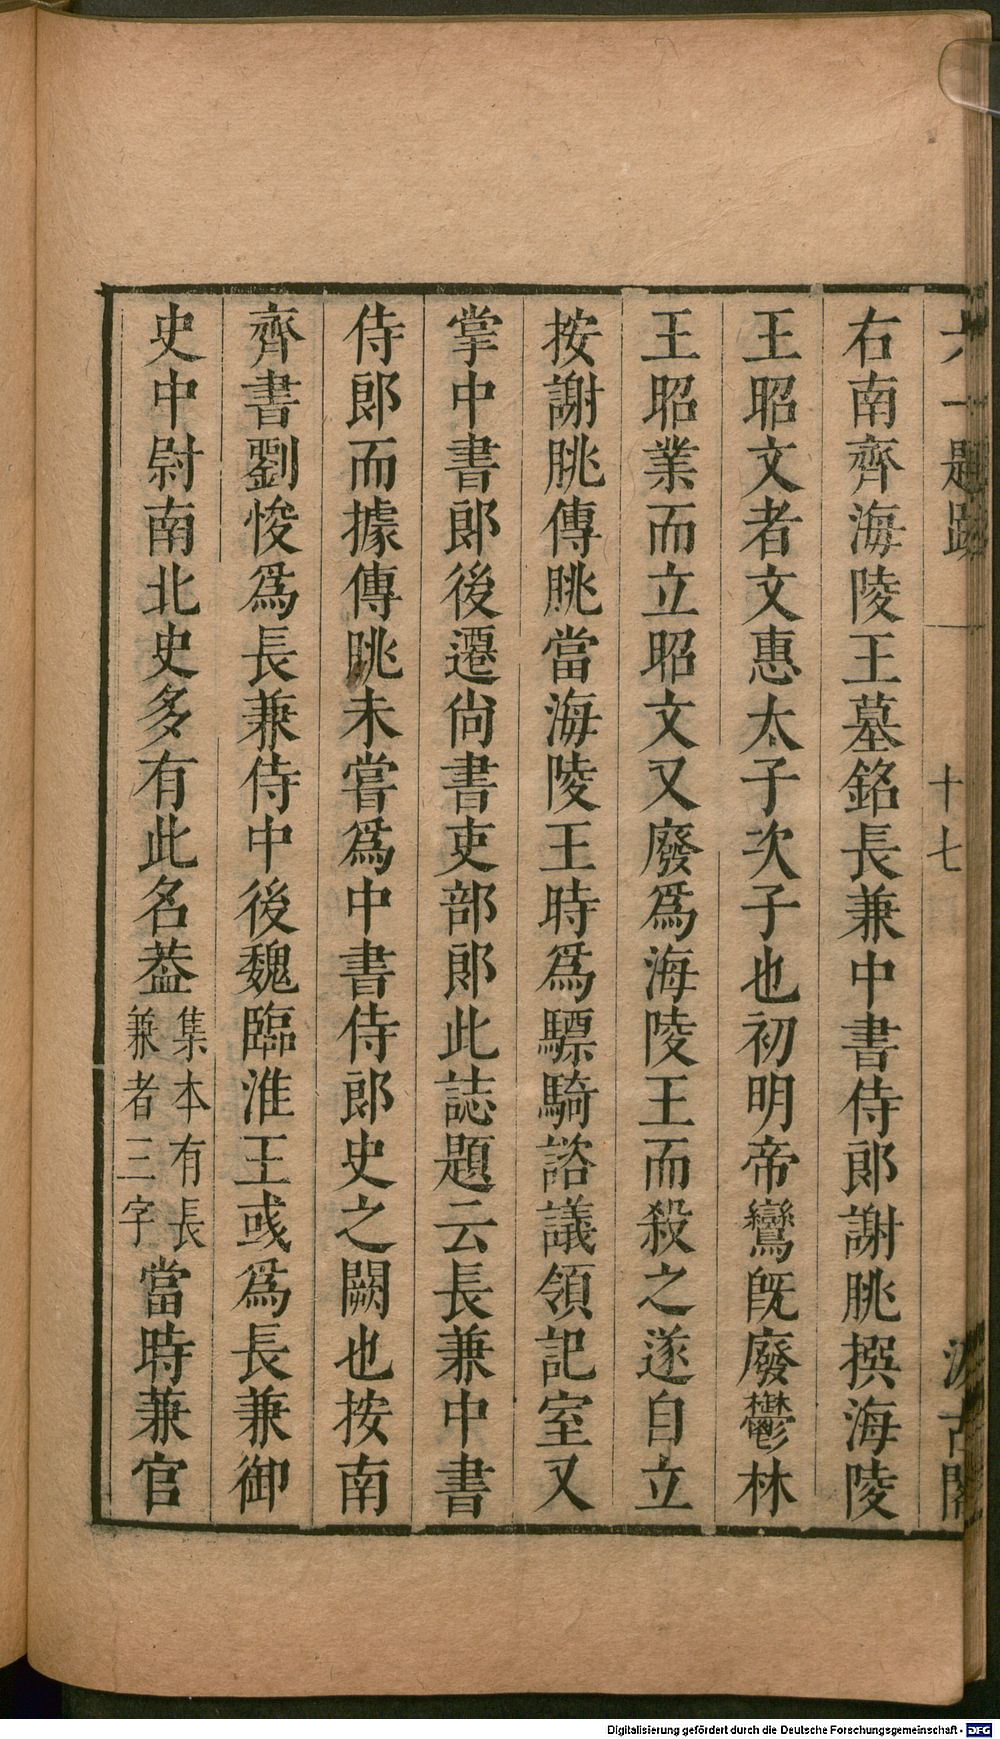 六一題跋
十七
汲古閣
右南齊海陵王墓銘長兼中書侍郎謝朓撰海陵
王昭文者文惠太子次子也初明帝鸞旣廢鬱林
王昭業而立昭文又廢爲海陵王而殺之遂自立
按謝朓傳朓當海陵王時爲驃騎諮議領記室又
掌中書郎後遷尙書吏部郎此誌題云長兼中書
侍郎而據傳朓未嘗爲中書侍郎史之闕也按南
齊書劉悛爲長兼侍中後魏臨淮王彧爲長兼御
史中尉南北史多有此名葢集本有長兼者三字當時兼官
Digitalisierung gefördert durch die Deutsche Forschungsgemeinschaft - DFG